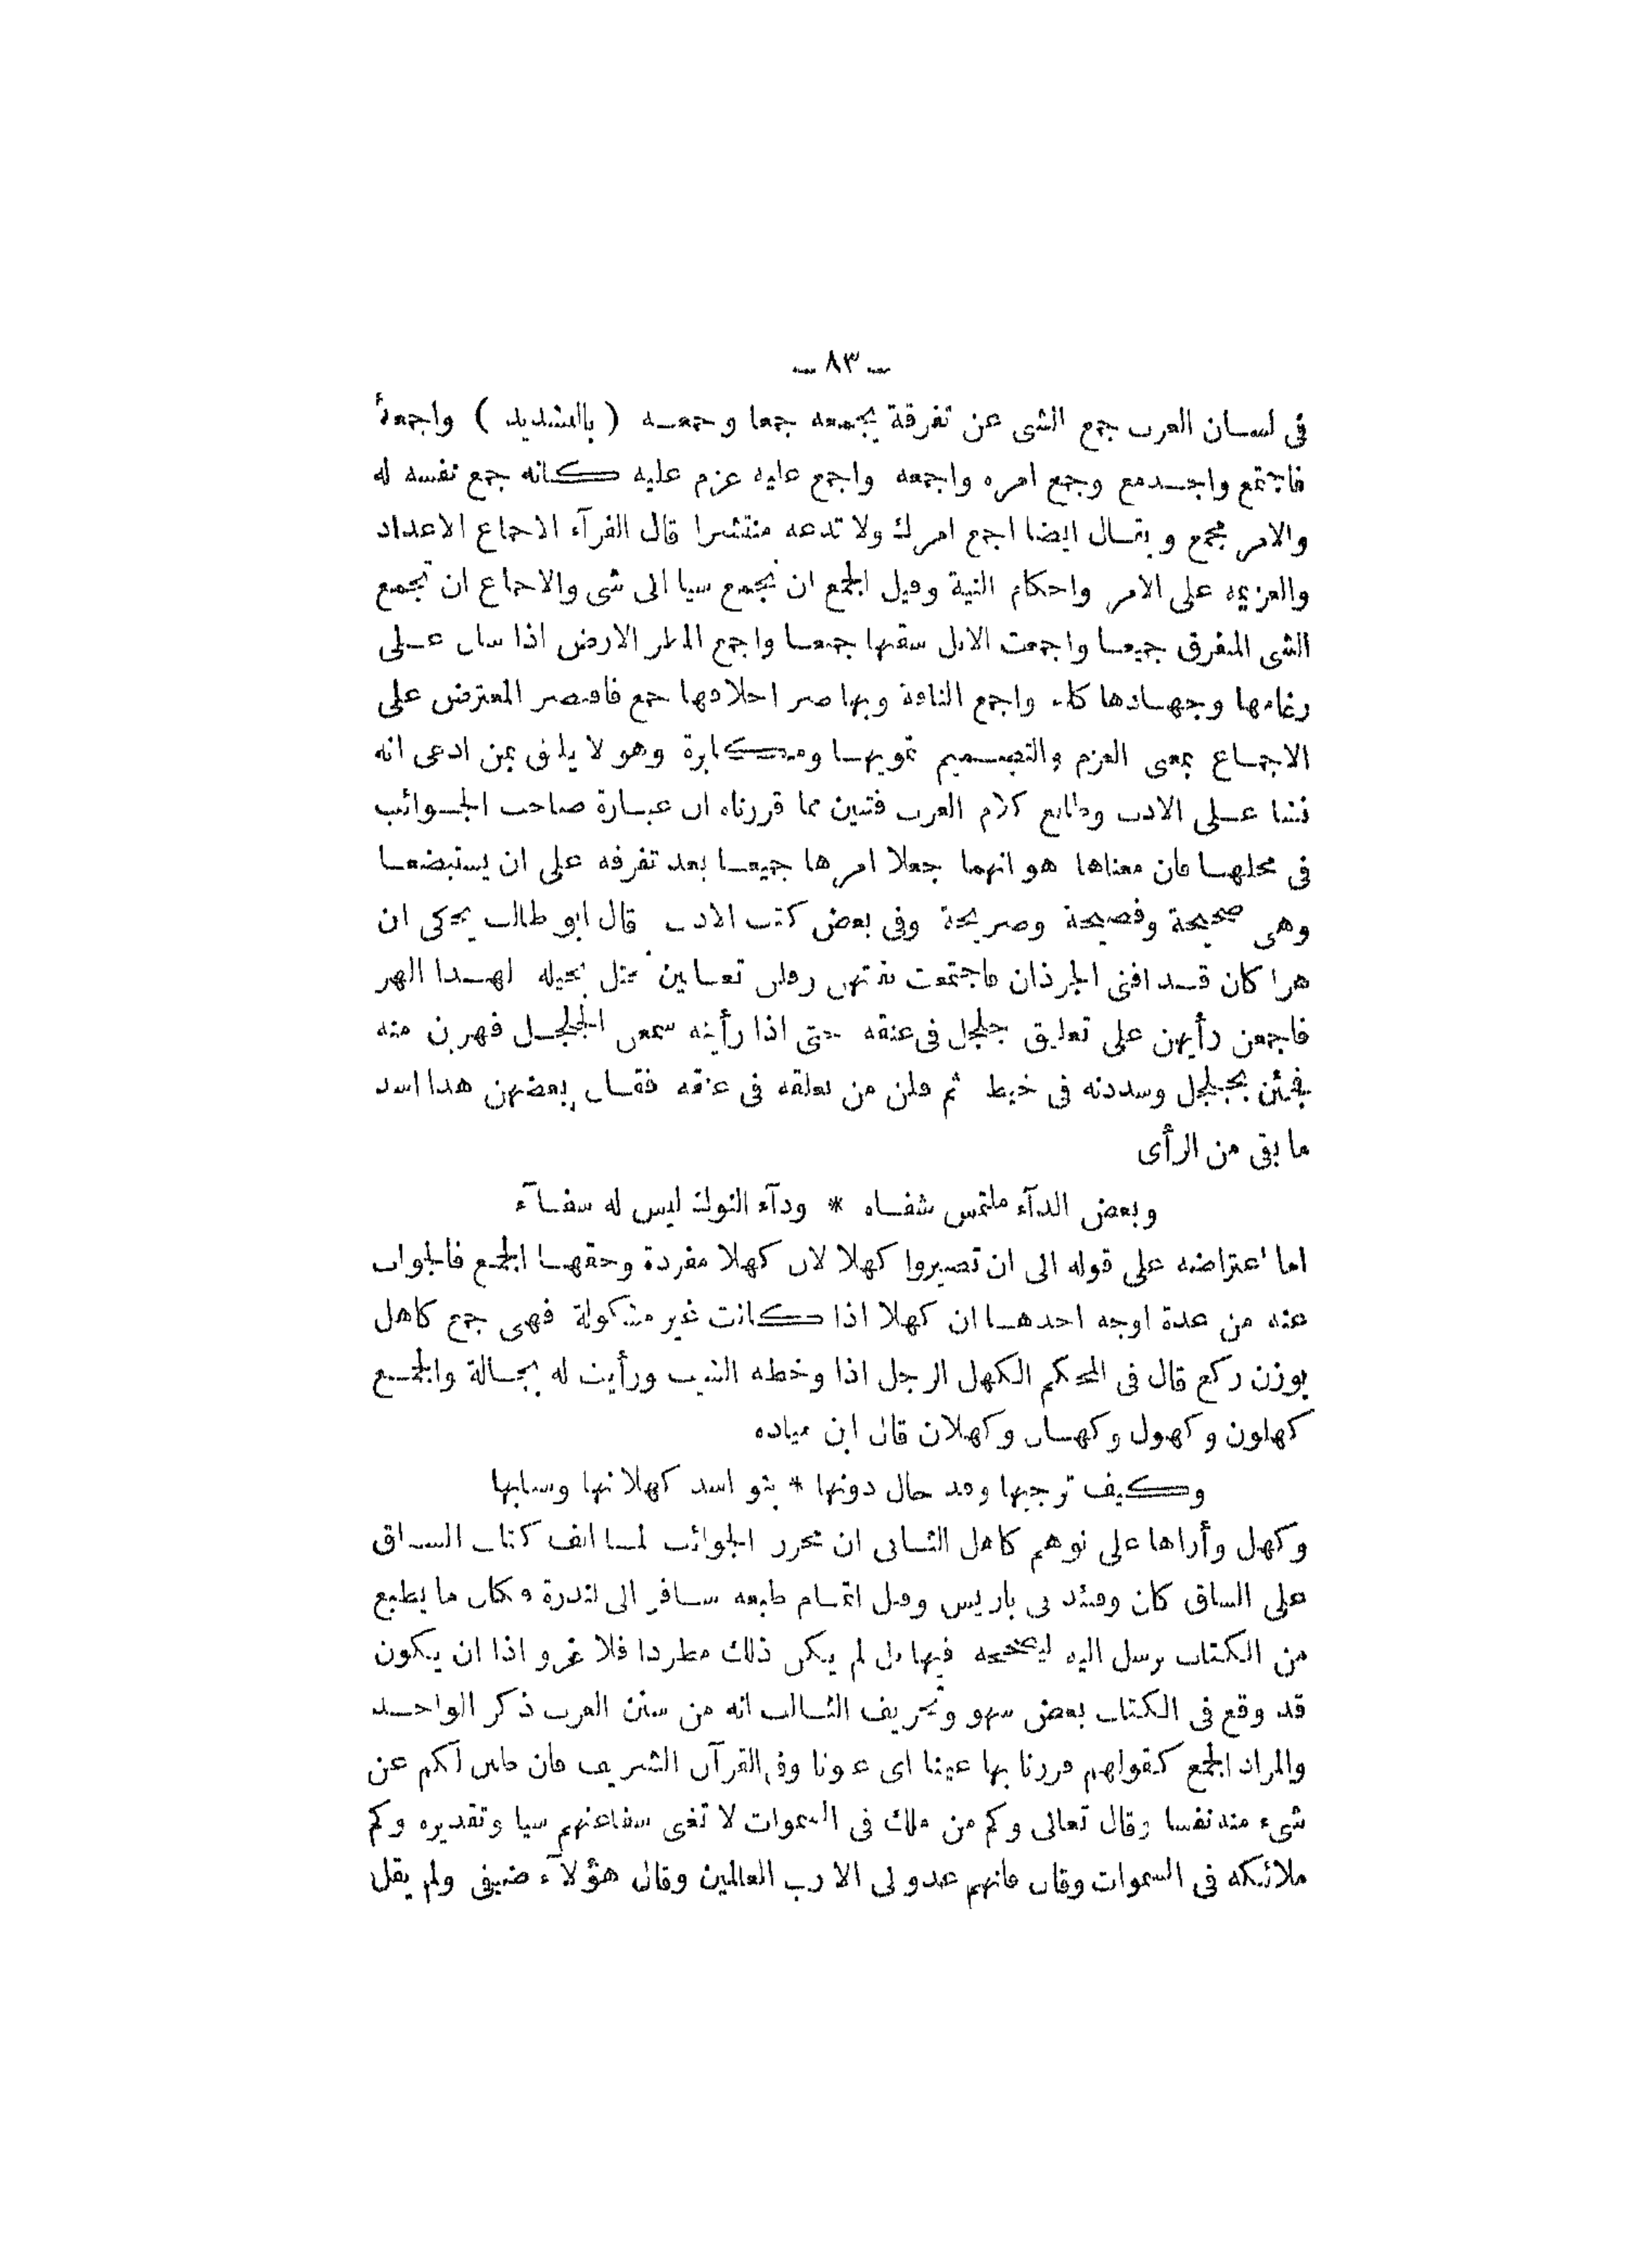 ـ ٨٣ ـ
فى لسان العرب جمع الشى عن تفرقة يجمعه جمعا وجمعه ( بالتشديد ) واجمعه
فاجتمع واجدمع وجمع امره واجمعه واجمع عليه عزم عليه كانه جمع نفسه له
والامر مجمع ويقال ايضا اجمع امرك ولا تدعه منتشرا قال الفرآء الاجماع الاعداد
والعزيمة على الامر واحكام النية وقيل الجمع ان تجمع شيا الى شى والاجماع ان تجمع
الشى المتفرق جميعا واجمعت الابل سقتها جميعا واجمع المطر الارض اذا سال على
رغابها وجهادها كلها واجمع الناقة وبها صر اخلافها جمع فاقتصر المعترض على
الاجماع بمعنى العزم والتصميم تمويها ومكابرة وهو لا يليق بمن ادعى انه
نشا على الادب وطالع كلام العرب فتبين مما قررناه ان عبارة صاحب الجوائب
فى محلها فان معناها هو انهما جعلا امرها جميعا بعد تفرقه على ان يستبضعا
وهى صحيحة وفصيحة وصريحة وفى بعض كتب الادب قال ابو طالب يحكى ان
هرا كان قد افنى الجرذان فاجتمعت بقيتهن وقلن تعالين نحتل بحيلة لهذا الهر
فاجمعن رأيهن على تعليق جلجل فى عنقه حتى اذا رأينه سمعن الجلجل فهربن منه
فجئن بجلجل وشددنه فى خيط ثم قلن من يعلقه فى عنقه فقال بعضهن هذا اشد
ما بقى من الرأى
وبعض الدآء ملتمس شفاه * ودآء النوك ليس له شفآء
اما اعتراضه على قوله الى ان تصيروا كهلا لان كهلا مفردة وحقها الجمع فالجواب
عنه من عدة اوجه احدها ان كهلا اذا كانت غير مشكولة فهى جمع كاهل
بوزن ركع قال فى المحكم الكهل الرجل اذا وخطه الشيب ورأيت له بجالة والجمع
كهلون وكهول وكهال وكهلان قال ابن مياده
وكيف ترجيها وقد حال دونها * بنو اسد كهلانها وشبابها
وكهل وأراها على توهم كاهل الثانى ان محرر الجوائب لما الف كتاب الساق
على الساق كان وقتئذ فى باريس وقبل اتمام طبعه سافر الى لندرة فكان ما يطبع
من الكتاب يرسل اليه ليصححه فيها بل لم يكن ذلك مطردا فلا غرو اذا ان يكون
قد وقع فى الكتاب بعض سهو وتحريف الثالث انه من سنن العرب ذكر الواحد
والمراد الجمع كقولهم قررنا بها عينا اى عيونا وفى القرآن الشريف فان طبن لكم عن
شىء منه نفسا وقال تعالى وكم من ملك فى السموات لا تغنى شفاعتهم شيا وتقديره وكم
ملائكه فى السموات وقال فانهم عدو لى الا رب العالمين وقال هؤلآء ضيفى ولم يقل